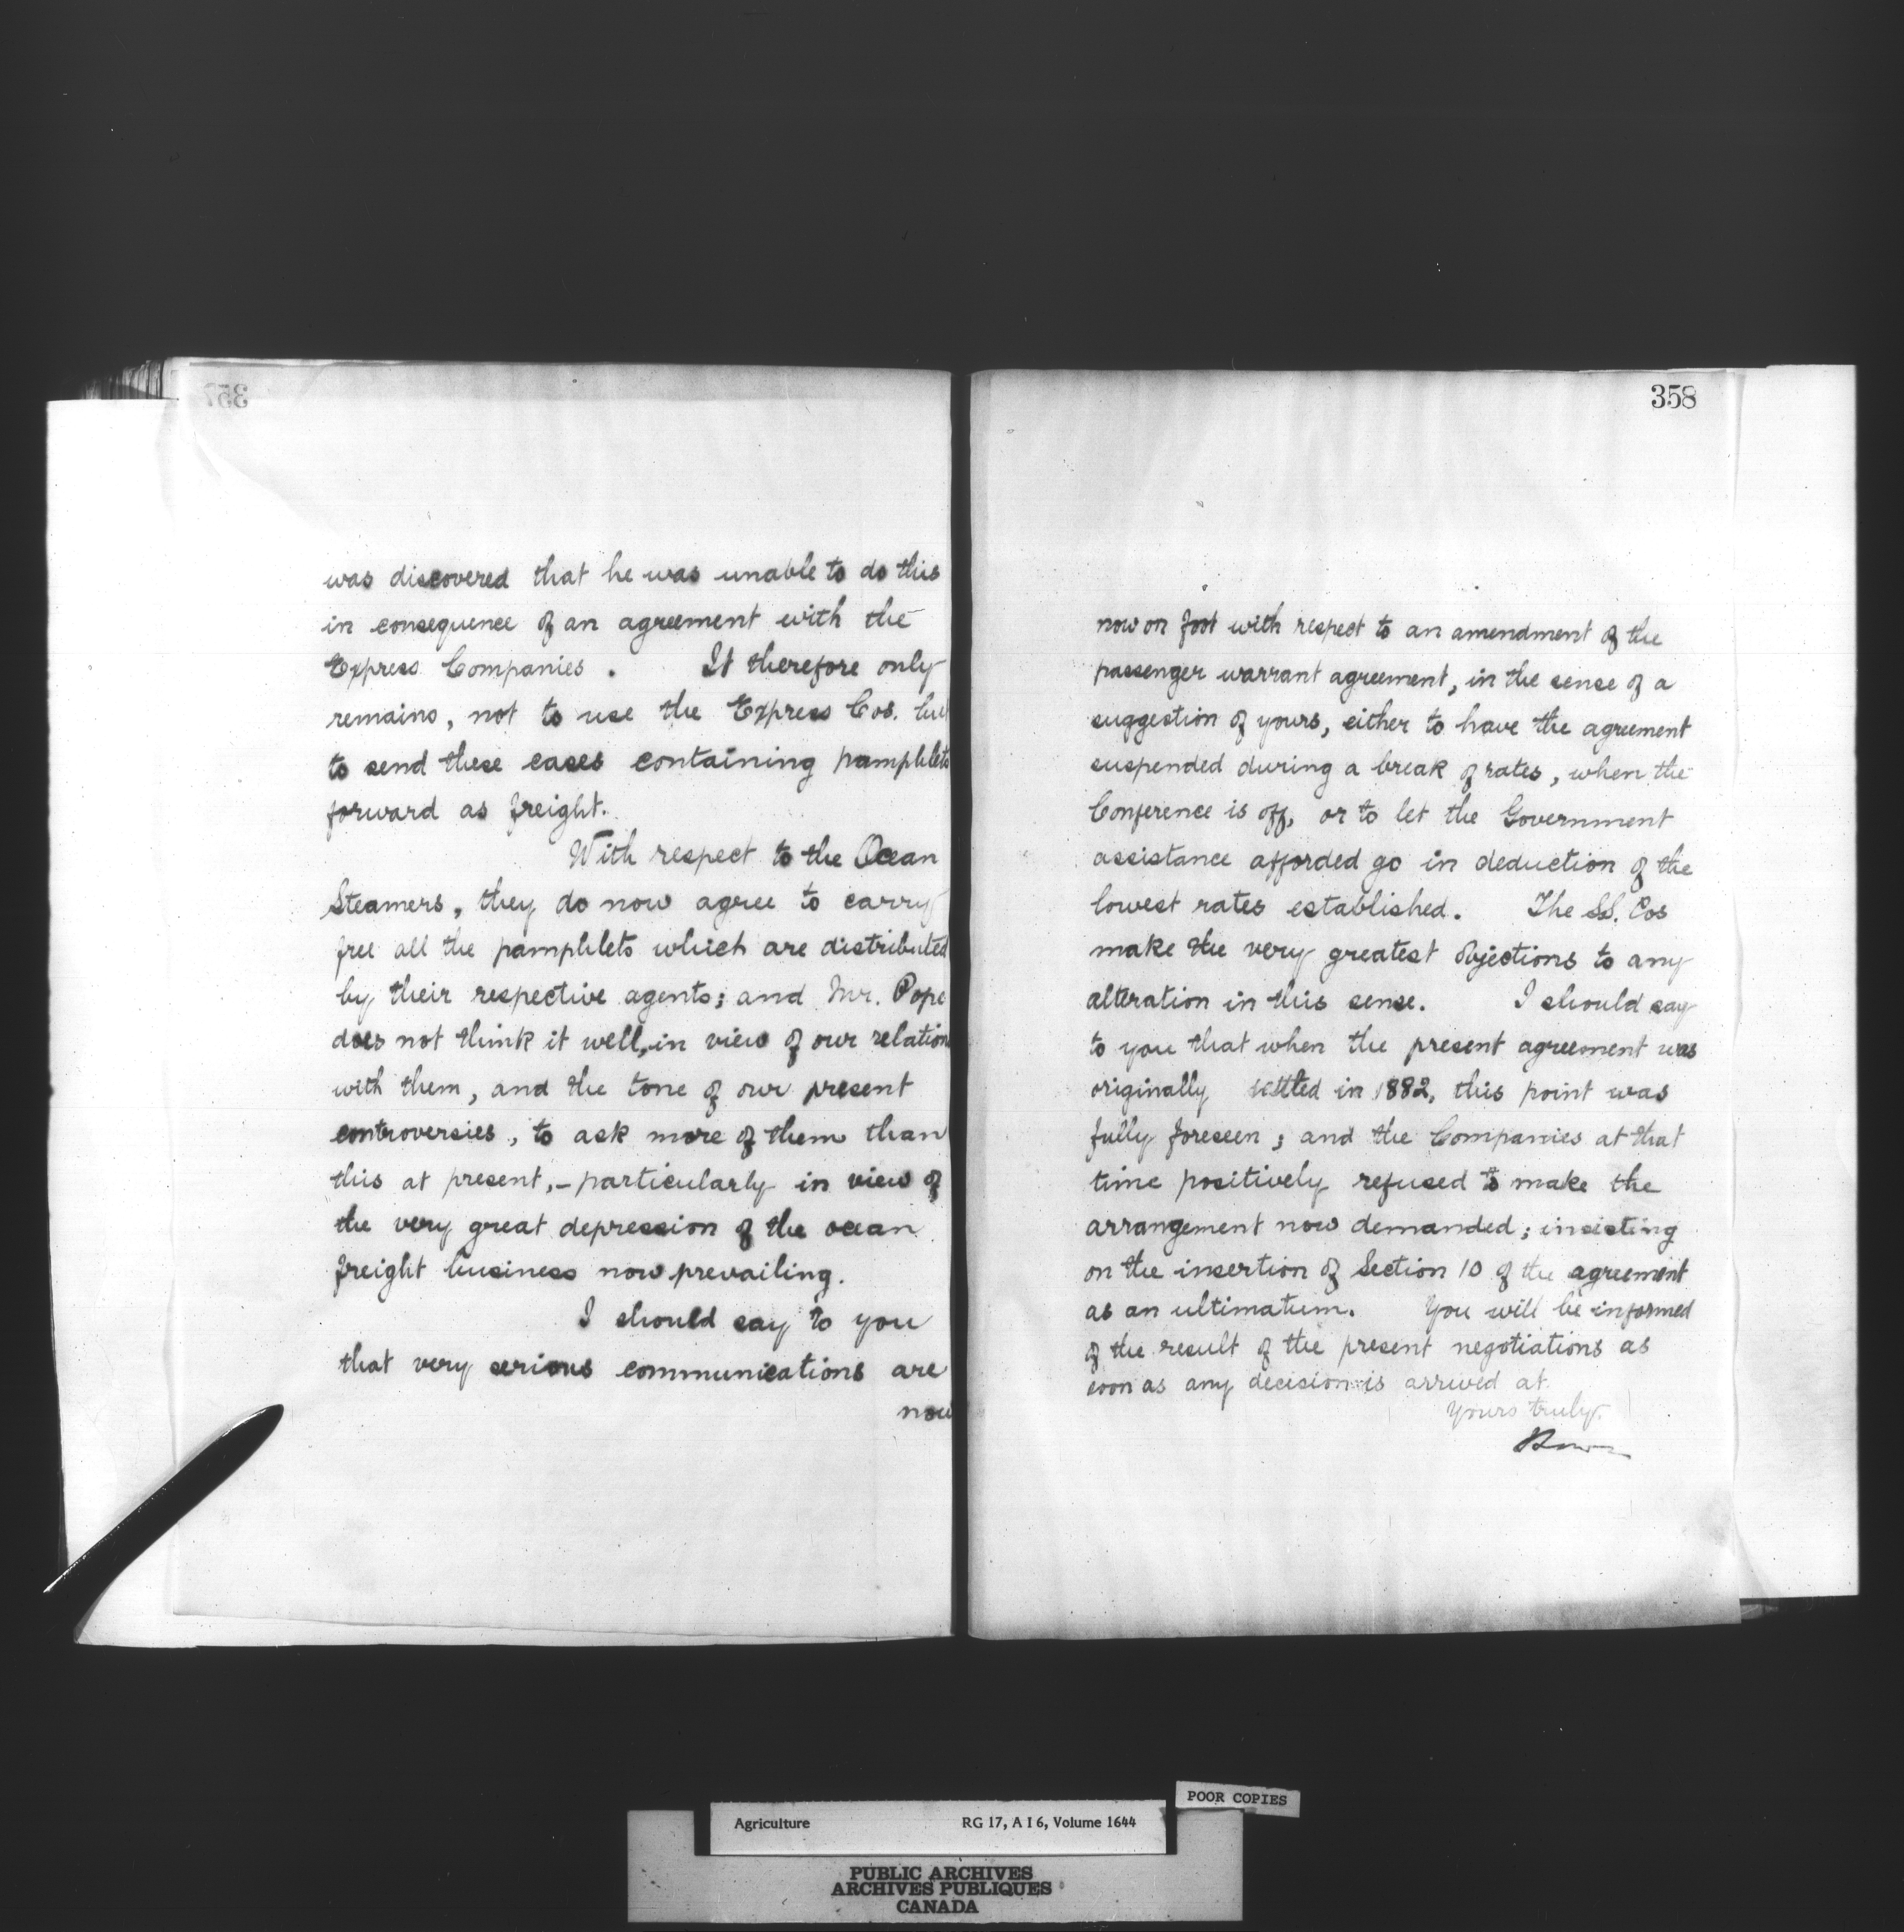 357
was discovered that he was unable to do this
in consequence of an agreement with the
Express Companies. It therefore only
remains, not to use the Express Cos. but
to send these cases containing pamphlets
forward as freight.
With respect to the Ocean
Steamers, they do now agree to carry
free all the pamphlets which are distributed
by their respective agents; and Mr. Pope
does not think it well, in view of our relations
with them, and the tone of our present
controversies, to ask more of them than
this at present, - particularly in view of
the very great depression of the ocean
freight business now prevailing.
I should say to you
that very serious communications are
now
358
now on foot with respect to an amendment of the
passenger warrant agreement, in the sense of a
suggestion of yours, either to have the agreement
suspended during a break of rates, when the
Conference is off, or to let the Government
assistance afforded go in deduction of the
lowest rates established. The SS. Cos
make the very greatest objections to any
alteration in this sense. I should say
to you that when the present agreement was
originally settled in 1882, this point was
fully foreseen; and the Companies at that
time positively refused to make the
arrangement now demanded; insisting
on the insertion of Section 10 of the agreement
as an ultimatum. You will be informed
of the result of the present negotiations as
soon as any decision is arrived at
Yours truly.
POOR COPIES
Agriculture RG 17, A I 6, Volume 1644
PUBLIC ARCHIVES
ARCHIVES PUBLIQUES
CANADA